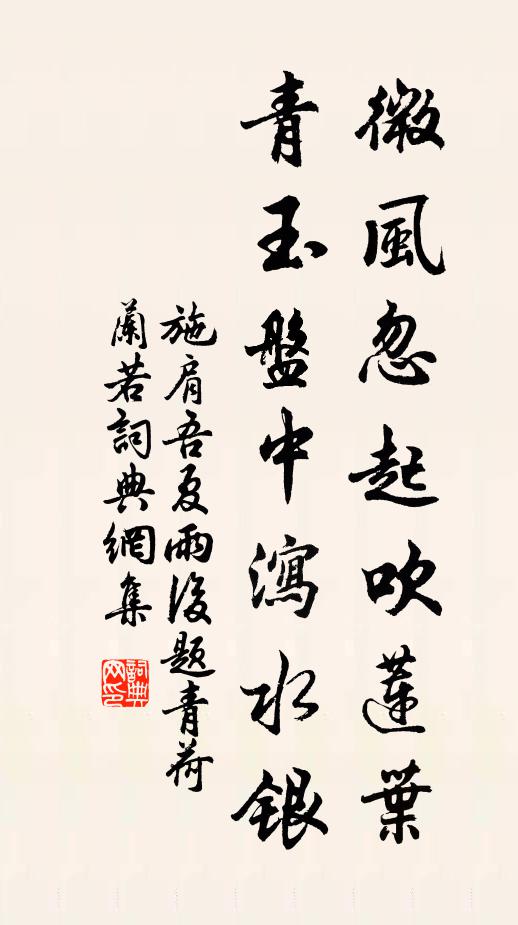 微風忽起吹蓮葉
青玉盤中瀉水銀
施肩吾夏雨後題青荷
蘭若詞典網集
詞典網印